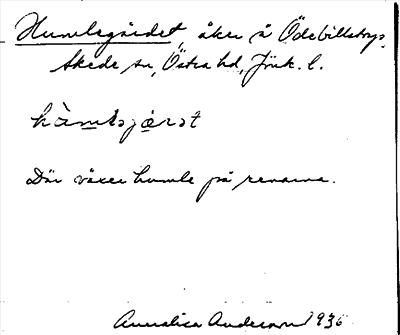 Humlegärdet, åker å Ödebilltorp,
Skede sn, Östra hd, Jönk. l.
Där växer humle på renarna.
Annalisa Anderson 1936